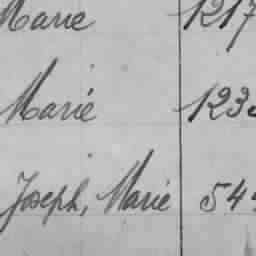 Marie 1217
Marié 123
Joseph, Marie 54